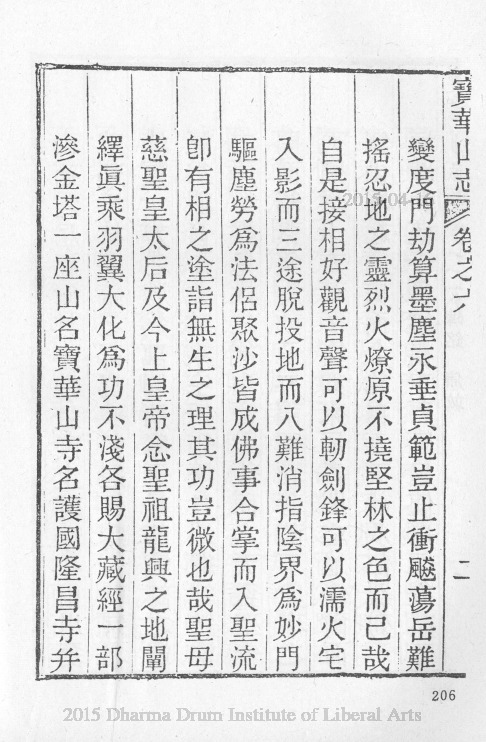 寶華山志 卷之六 二
變度門劫算墨塵永垂貞範豈止衝飈蕩岳難
搖忍地之靈烈火燎原不撓堅林之色而已哉
自是接相好觀音聲可以軔劍鋒可以濡火宅
入影而三途脫投地而八難消指陰界爲妙門
驅塵勞爲法侶聚沙皆成佛事合掌而入聖流
卽有相之塗詣無生之理其功豈微也哉聖母
慈聖皇太后及今上皇帝念聖祖龍興之地闡
繹眞乘羽翼大化爲功不淺各賜大藏經一部
滲金塔一座山名寶華山寺名護國隆昌寺并
206
2015 Dharma Drum Institute of Liberal Arts